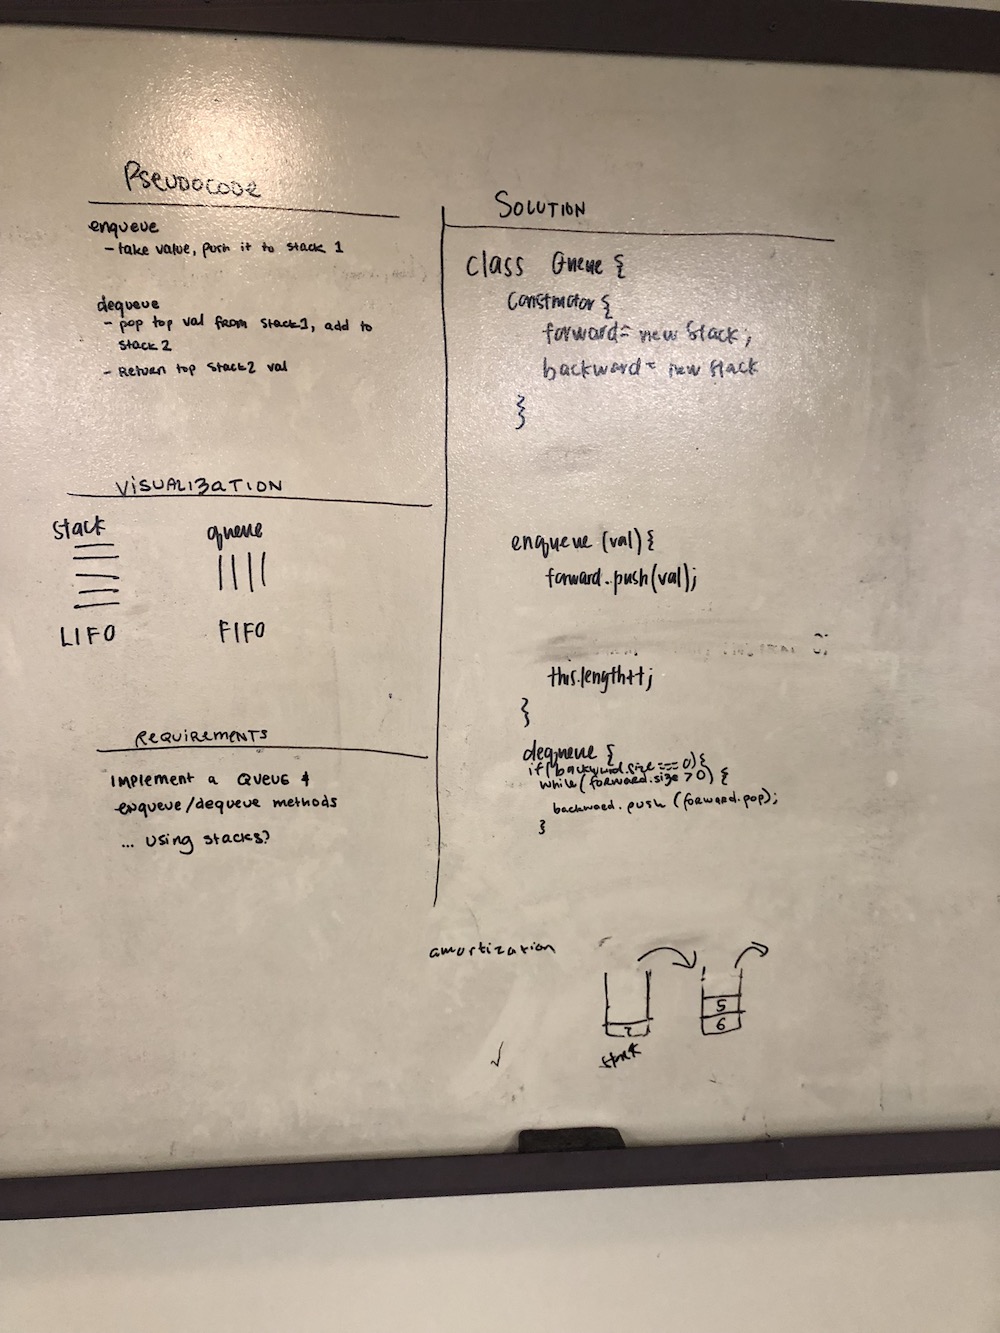 Pseudocode
enqueue
- take value, push it to stack 1
dequeue
- pop top val from stack1, add to
stack2
- Return top stack2 val
Visualization
stack
queue
LIFO
FIFO
Requirements
Implement a queue &
enqueue/dequeue methods
... using stacks?
Solution
class Queue {
constructor {
forward= new Stack;
backward= new Stack
}
enqueue (val) {
forward.push(val);
this.length++;
}
dequeue {
if(backward.size === 0) {
while(forward.size > 0) {
backward.push (forward.pop);
}
amortization
5
7
6
stack